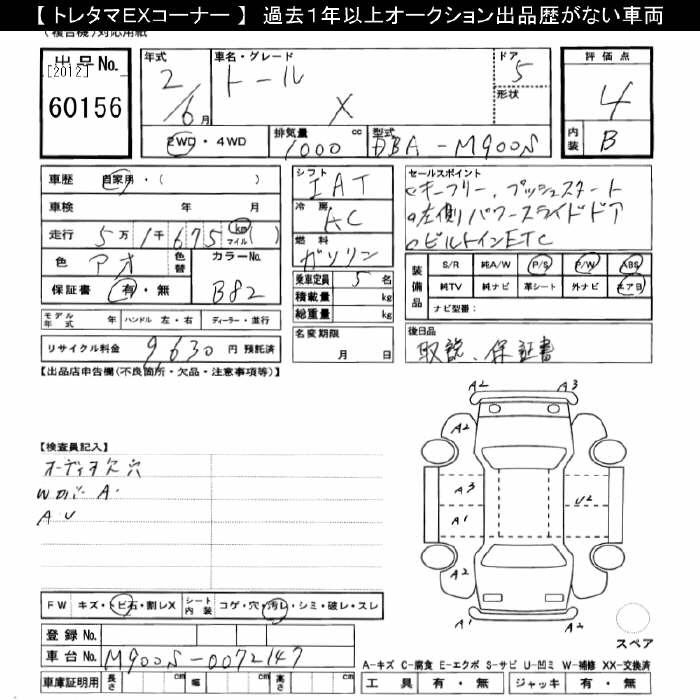 【 トレタマEXコーナー 】 過去１年以上オークション出品歴がない車両
(複合機)対応用紙
出品No.
[2012]
60156
年式
2/6月
車名・グレード
トール
X
ドア
5
形状
評価点
4
内装
B
2WD・4WD
排気量
1000 cc
型式
DBA-M900S
車歴 自家用・( )
車検 年 月
走行 5万1千675 km マイル ( )
色 アオ 色替 カラーNo. B82
保証書 有・無
モデル年式 年 ハンドル 左・右 ディーラー・並行
リサイクル料金 9,630 円 預託済
シフト
IAT
冷房
AC
燃料
ガソリン
乗車定員 5 名
積載量 kg
総重量 kg
名変期限
月 日
セールスポイント
キーフリー、プッシュスタート
左側パワースライドドア
ビルトインETC
装備品
S/R 純A/W P/S P/W ABS
純TV 純ナビ 革シート 外ナビ エアB
ナビ型番：
後日品
取説、保証書
【出品店申告欄(不良箇所・欠品・注意事項等)】
【検査員記入】
オーディオ欠 穴
A U
A2 A3
A2
A3 U2
A1
A1 A2
スペア
FW キズ・トビ石・割レX シート内装 コゲ・穴・汚レ・シミ・破レ・スレ
登録No.
車台No. M900S-0072147
車庫証明用 長さ cm 幅 cm 高さ cm
A-キズ C-腐食 E-エクボ S-サビ U-凹ミ W-補修 XX-交換済
工具 有・無 ジャッキ 有・無